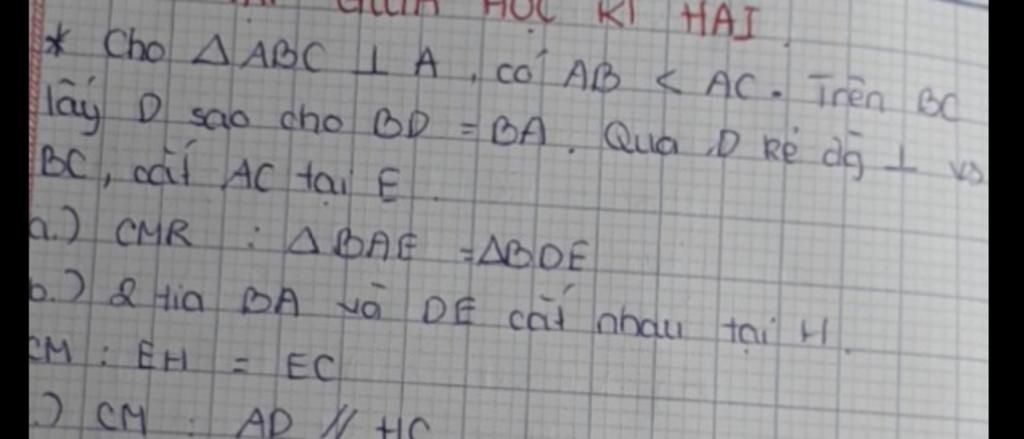 HỌC KÌ HAI
* Cho Δ ABC ⊥ A, có AB < AC. Trên BC
lấy D sao cho BD = BA. Qua D kẻ đg ⊥ vs
BC, cắt AC tại E
a.) CMR : Δ BAE = ΔBDE
b.) 2 tia BA và DE cắt nhau tại H.
CM : EH = EC
.) CM : AD // HC